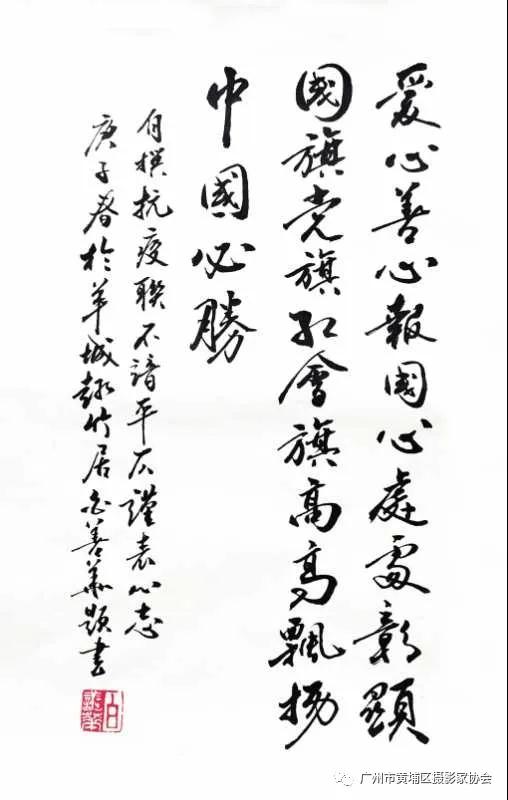 愛心善心報國心處處彰顯
國旗党旗紅會旗高高飄揚
中國必勝
自撰抗疫聯不諳平仄謹表心志
庚子春於羊城竹居白善華題書
广州市黄埔区摄影家协会